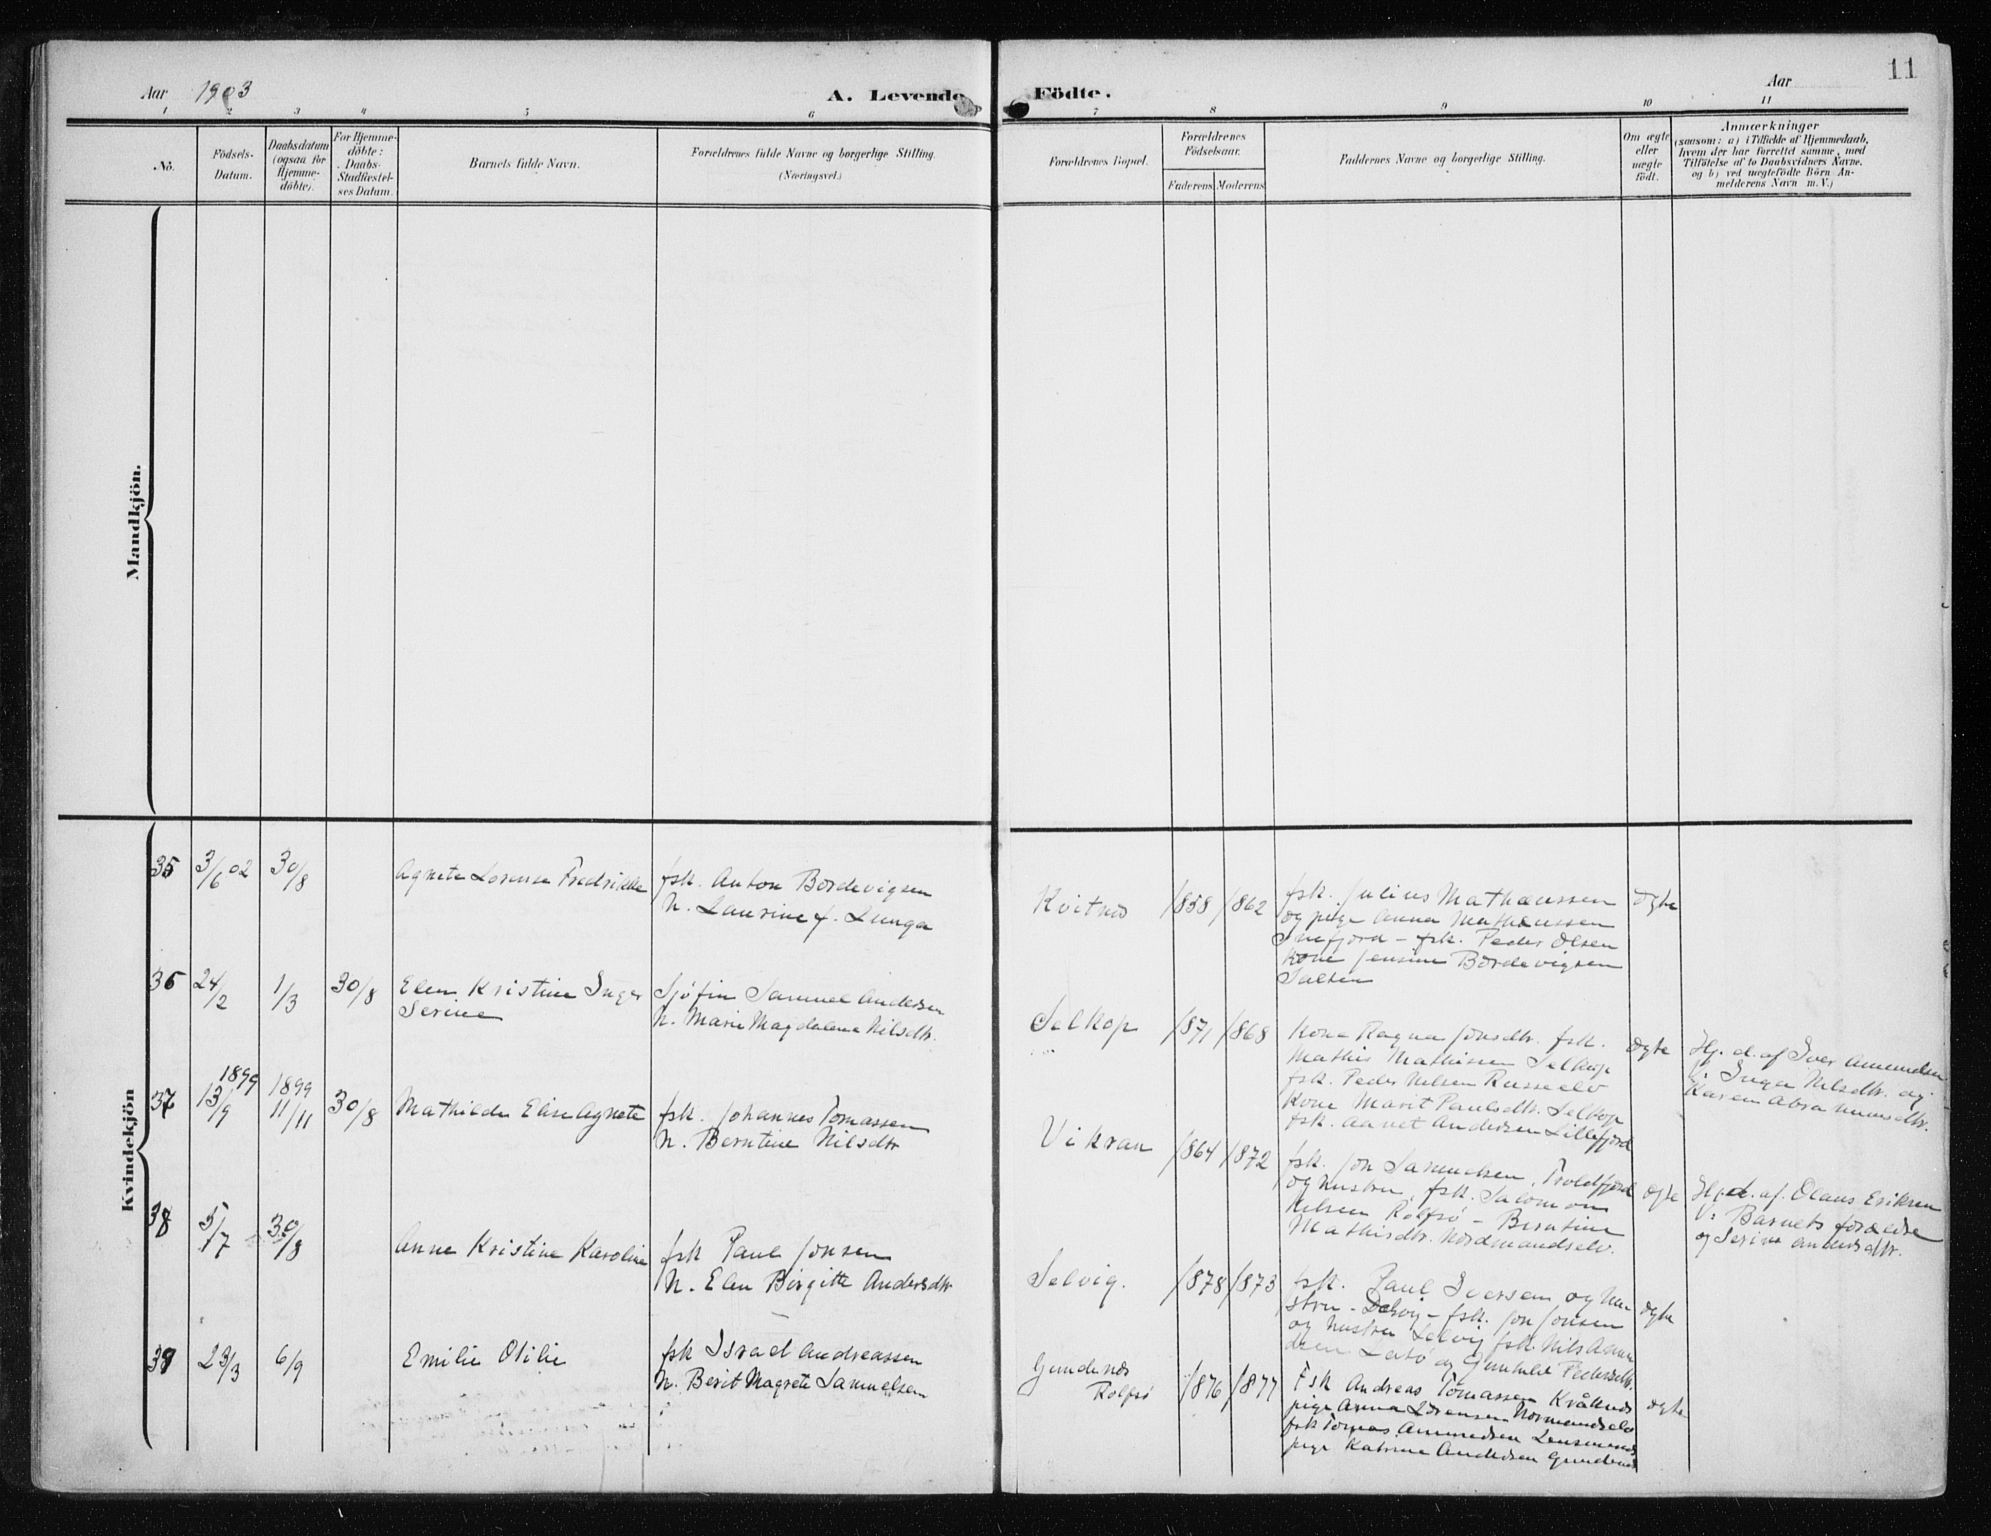 11
Aar 1903
A. Levende Födte.
Aar
1 2 3 4 5 6 7 8 9 10 11
No.
Födsels-
Datum.
Daabsdatum
(ogsaa for
Hjemme-
döbte).
For Hjemme-
döbte:
Daabs-
Stadfæstel-
ses Datum.
Barnets fulde Navn.
Forældrenes fulde Navne og borgerlige Stilling.
(Næringsvei.)
Forældrenes Bopæl.
Forældrenes
Födselsaar.
Faderens Moderens
Faddernes Navne og borgerlige Stilling.
Om ægte
eller
uægte
födt.
Anmærkninger
(saasom: a) i Tilfælde af Hjemmedaab,
hvem der har forrettet samme, med
Tilföielse af to Daabsvidners Navne.
og b) ved uægtefödte Börn An-
melderens Navn m. V.)
Mandkjön.
Kvindekjön
35 3/6 02 30/8
Agnete Lorense Fredrikke
fsk. Anton Bordevigsen
H. Laurine f. Lunga
Kvitnes 1858 1862
fsk. Julius Mathæussen
og pige Anna Mathæussen
Snefjord - fsk. Peder Olsen
Kone Jensine Bordevigsen
Salten
ægte
36 24/2 1/3 30/8
Elen Kristine Inger
Serine
Sjøfin Samuel Andersen
H. Marie Magdalena Nilsdtr.
Selkop 1871 1868
Kone Ragna Jonsdtr. fsk.
Mathis Mathisen Selkop
fsk. Peder Nilsen Russeelv
Kone Marit Paulsdtr. Selkop
fsk. Andersen Lillefjord
ægte
Hj. d. af Iver Amundsen
Inga Nilsdtr. og
Karen Abrahamsdtr.
37 1899 13/9 1899 11/11 30/8
Mathilde Elise Agnete
fsk. Johannes Tomassen
H. Berntine Nilsdtr
Vikran 1864 1872
fsk. Jon Samuelsen, Troldfjord
og hustru, fsk. Salomon
Nilsen Rolfsø - Berntine
Mathisdtr. Nordmandselv.
ægte
Hj. d. af. Olaus Eriksen
v: Barnets forældre
og Serine Andersdtr.
38 5/7 30/8
Anne Kristine Karoline
fsk Paul Jonsen
H. Elen Birgitte Andersdtr
Selvig. 1878 1873
fsk. Paul Iversen og hu-
stru - Selvig - fsk. Jon Jonsen
og hustru Selvig fsk. Nils Amun
dsen Latø og Gunhild Pedersdtr.
ægte
39 23/3 6/9
Emilie Otilie
fsk Israel Andreassen
H. Berit Magrete Samuelsen
Gundenes
Rolfsø
1876 1877
Fsk Andreas Tomassen Kvålnes
pige Anna Lorensen Normandselv
fsk Tomas Amundsen
pige Katrine Andersen Gundenes
ægte